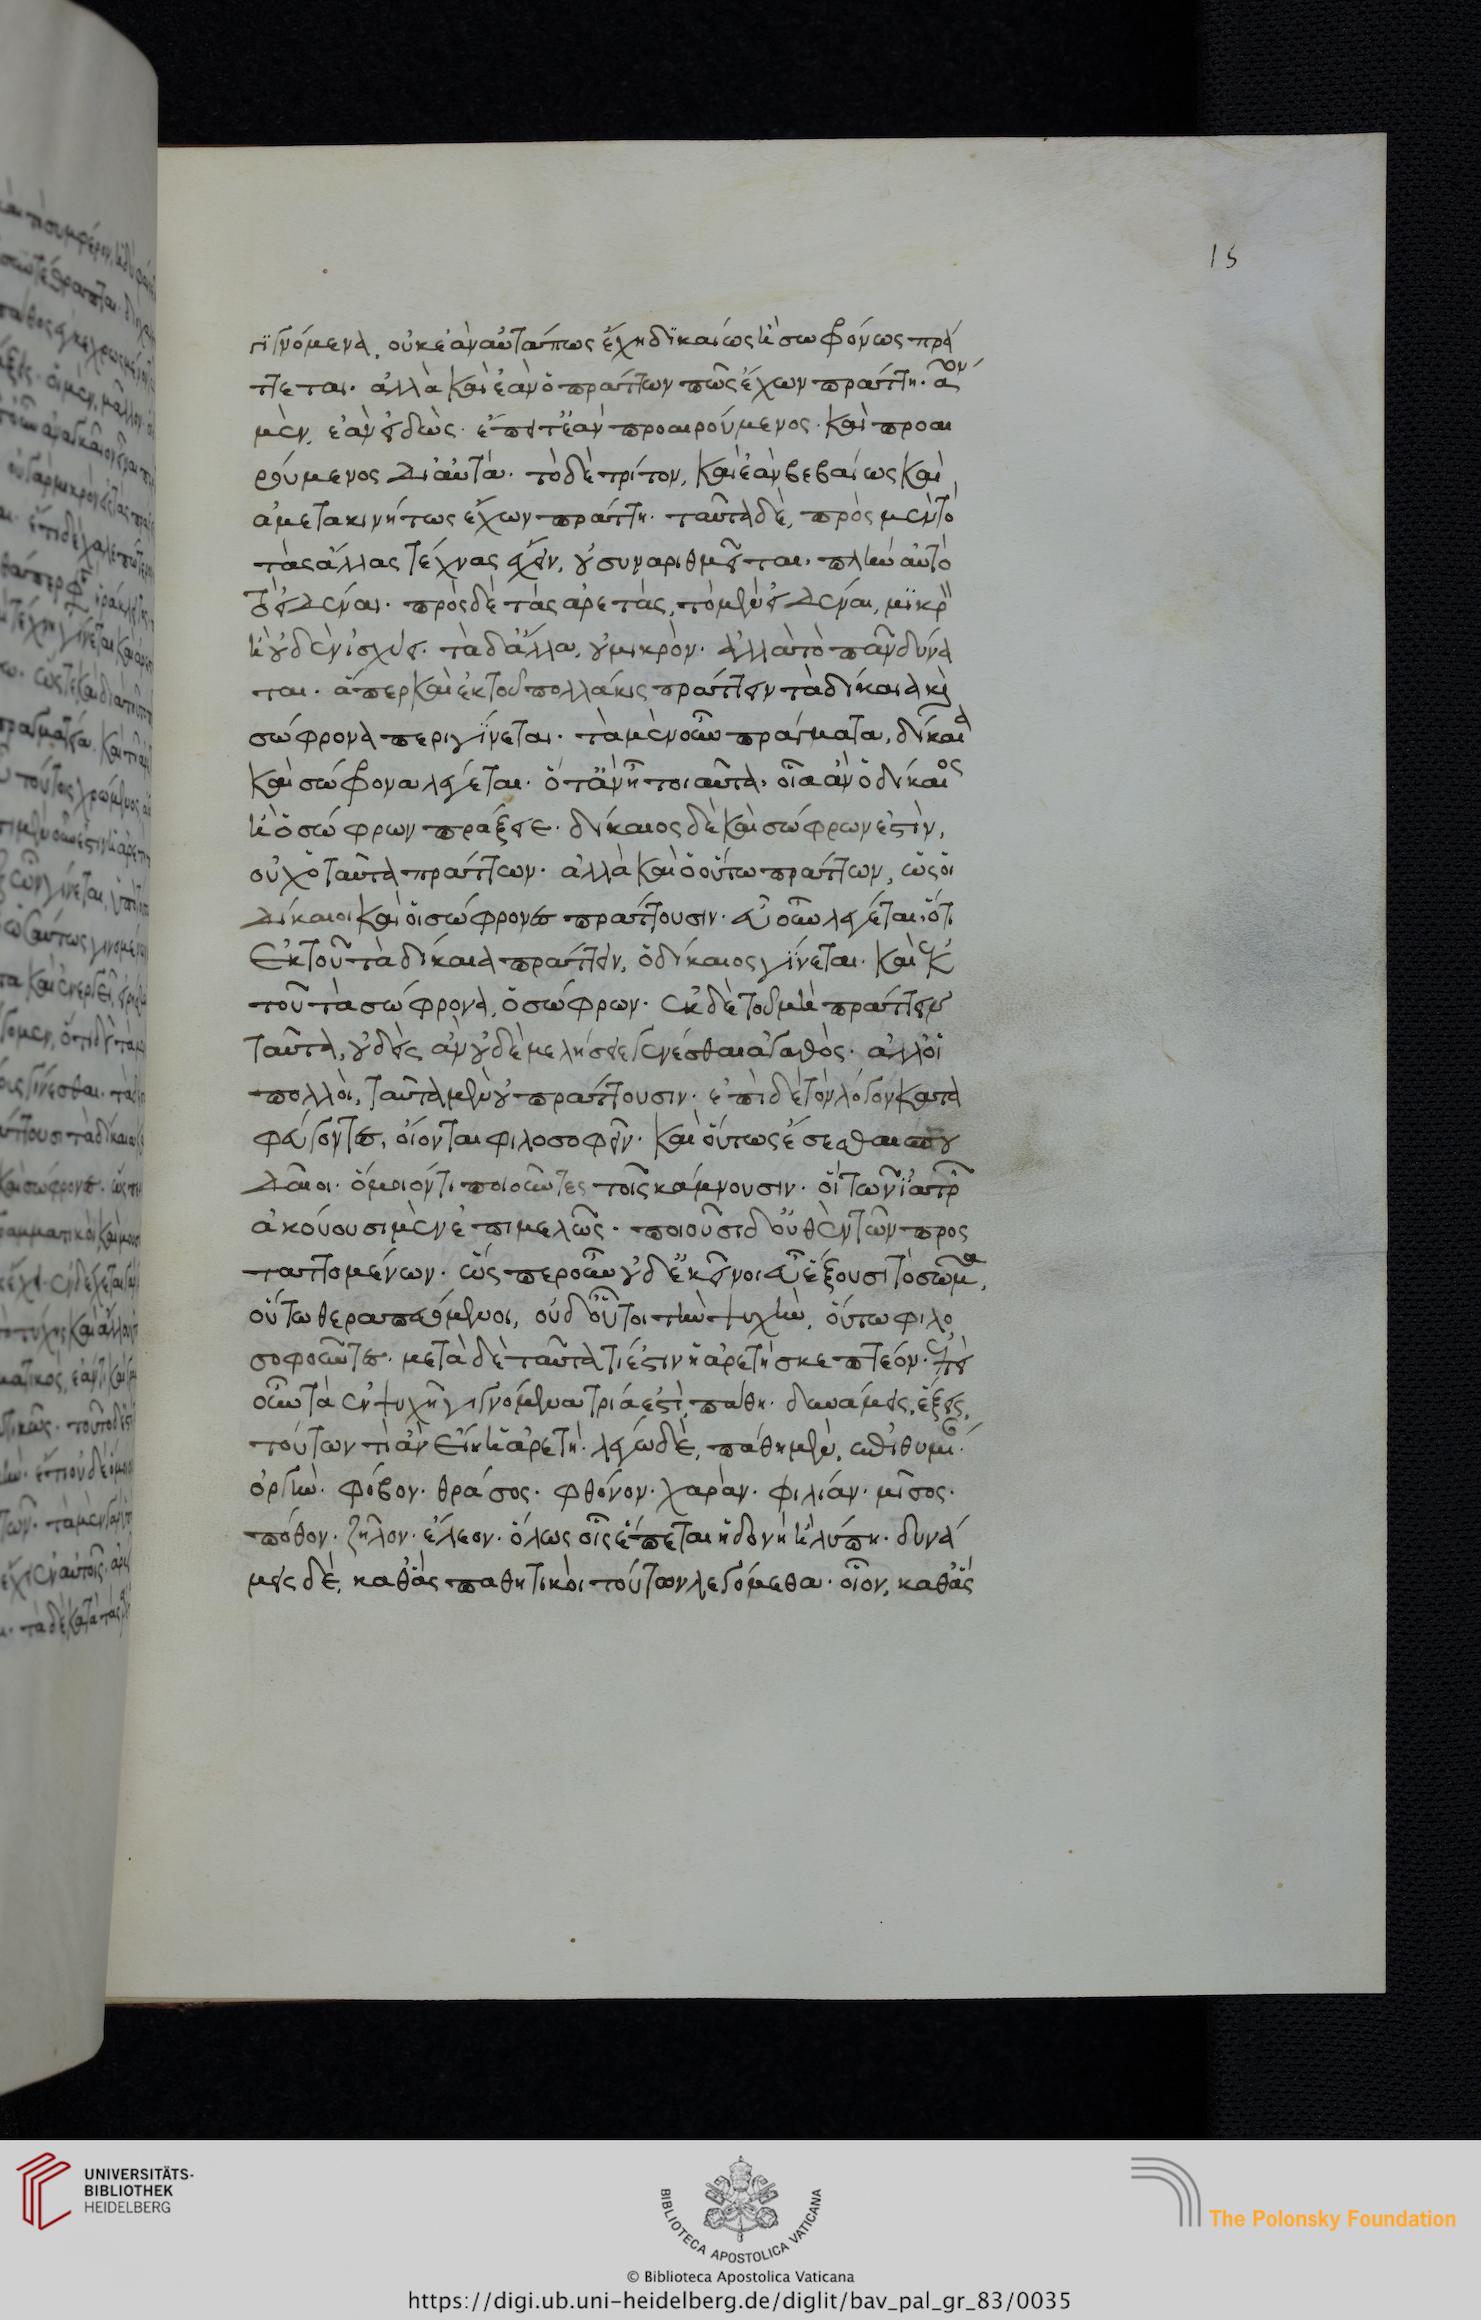 15
γϊγνόμενα, οὐκ ἐὰν αὐτά πως ἔχη δϊκαίως ἢ σωφρόνως πρά
ττεται· ἀλλὰ καὶ ἐὰν ὁ πράττων πῶς ἔχων πράττη· πρῶτον
μὲν, ἐὰν εἰδὼς· ἔπειτ' ἐὰν προαιρούμενος· καὶ προαι
ρούμενος δι' αὐτά· τὸ δὲ τρίτον, καὶ ἐὰν βεβαίως καὶ
ἀμετακινήτως ἔχων πράττη· ταῦτα δὲ, πρὸς μὲν τὸ
τὰς ἄλλας τέχνας ἔχειν, οὐ συναριθμεῖται· πλὴν αὐτὸ
τὸ εἰδέναι· πρὸς δὲ τὰς ἀρετάς, τὸ μὲν εἰδέναι, μϊκρὸν
ἢ οὐδὲν ἰσχύει· τὰ δ' ἄλλα, οὐ μικρὸν· ἀλλὰ τὸ πᾶν δύνα
ται· ἅπερ καὶ ἐκ τοῦ πολλάκις πράττειν τὰ δίκαια καὶ
σώφρονα περιγϊνεται· τὰ μὲν οὖν πράγματα, δίκαια
καὶ σώφρονα λέγεται· ὅταν ἦ τοιαῦτα, οἷα ἂν ὁ δίκαιος
ἢ ὁ σώφρων πράξειε· δίκαιος δὲ καὶ σώφρων ἐστὶν,
οὐχ ὁ ταῦτα πράττων· ἀλλὰ καὶ ὁ οὕτω πράττων, ὡς οἱ
δίκαιοι καὶ οἱ σώφρονες πράττουσιν· εὖ οὖν λέγεται, ὅτι
ἐκ τοῦ τὰ δίκαια πράττειν, ὁ δίκαιος γϊνεται· καὶ ἐκ
τοῦ τὰ σώφρονα, ὁ σώφρων· ἐκ δὲ τοῦ μὴ πράττειν
ταῦτα, οὐδεὶς ἂν οὐδὲ μελήσειε γενέσθαι ἀγαθὸς· ἀλλ' οἱ
πολλοὶ, ταῦτα μὲν οὐ πράττουσιν· ἐπὶ δὲ τὸν λόγον κατα
φεύγοντες, οἴονται φιλοσοφεῖν· καὶ οὕτως ἔσεσθαι σπου
δαῖοι· ὅμοιόν τι ποιοῦντες τοῖς κάμνουσιν· οἳ τῶν ϊατρῶν
ἀκούουσι μὲν ἐπιμελῶς· ποιοῦσι δ' οὐθὲν τῶν προς
ταττομένων· ὥσπερ οὖν οὐδ' ἐκεῖνοι εὖ ἕξουσι τὸ σῶμα,
οὕτω θεραπευόμενοι, οὐδ' οὗτοι τὴν ψυχὴν, οὕτω φιλο
σοφοῦντες· μετὰ δὲ ταῦτα τί ἐστιν ἡ ἀρετὴ σκεπτέον· ἐπεὶ
οὖν τὰ ἐν ψυχῆ γιγνόμενα τρία ἐστὶ, πάθη· δυνάμεις, ἕξεις,
τούτων τὶ ἂν εἴη ἡ ἀρετή· λέγω δὲ, πάθη μὲν, ἐπιθυμίαν·
ὀργὴν· φόβον· θράσος· φθόνον· χαράν· φιλίαν· μῖσος·
πόθον· ζῆλον· ἔλεον· ὅλως οἷς ἕπεται ἡδονὴ ἢ λύπη· δυνά
μεις δὲ, καθ' ἃς παθητικοὶ τούτων λεγόμεθα· οἷον, καθ' ἃς
UNIVERSITÄTS-
BIBLIOTHEK
HEIDELBERG
BIBLIOTECA APOSTOLICA VATICANA
© Biblioteca Apostolica Vaticana
The Polonsky Foundation
https://digi.ub.uni-heidelberg.de/diglit/bav_pal_gr_83/0035